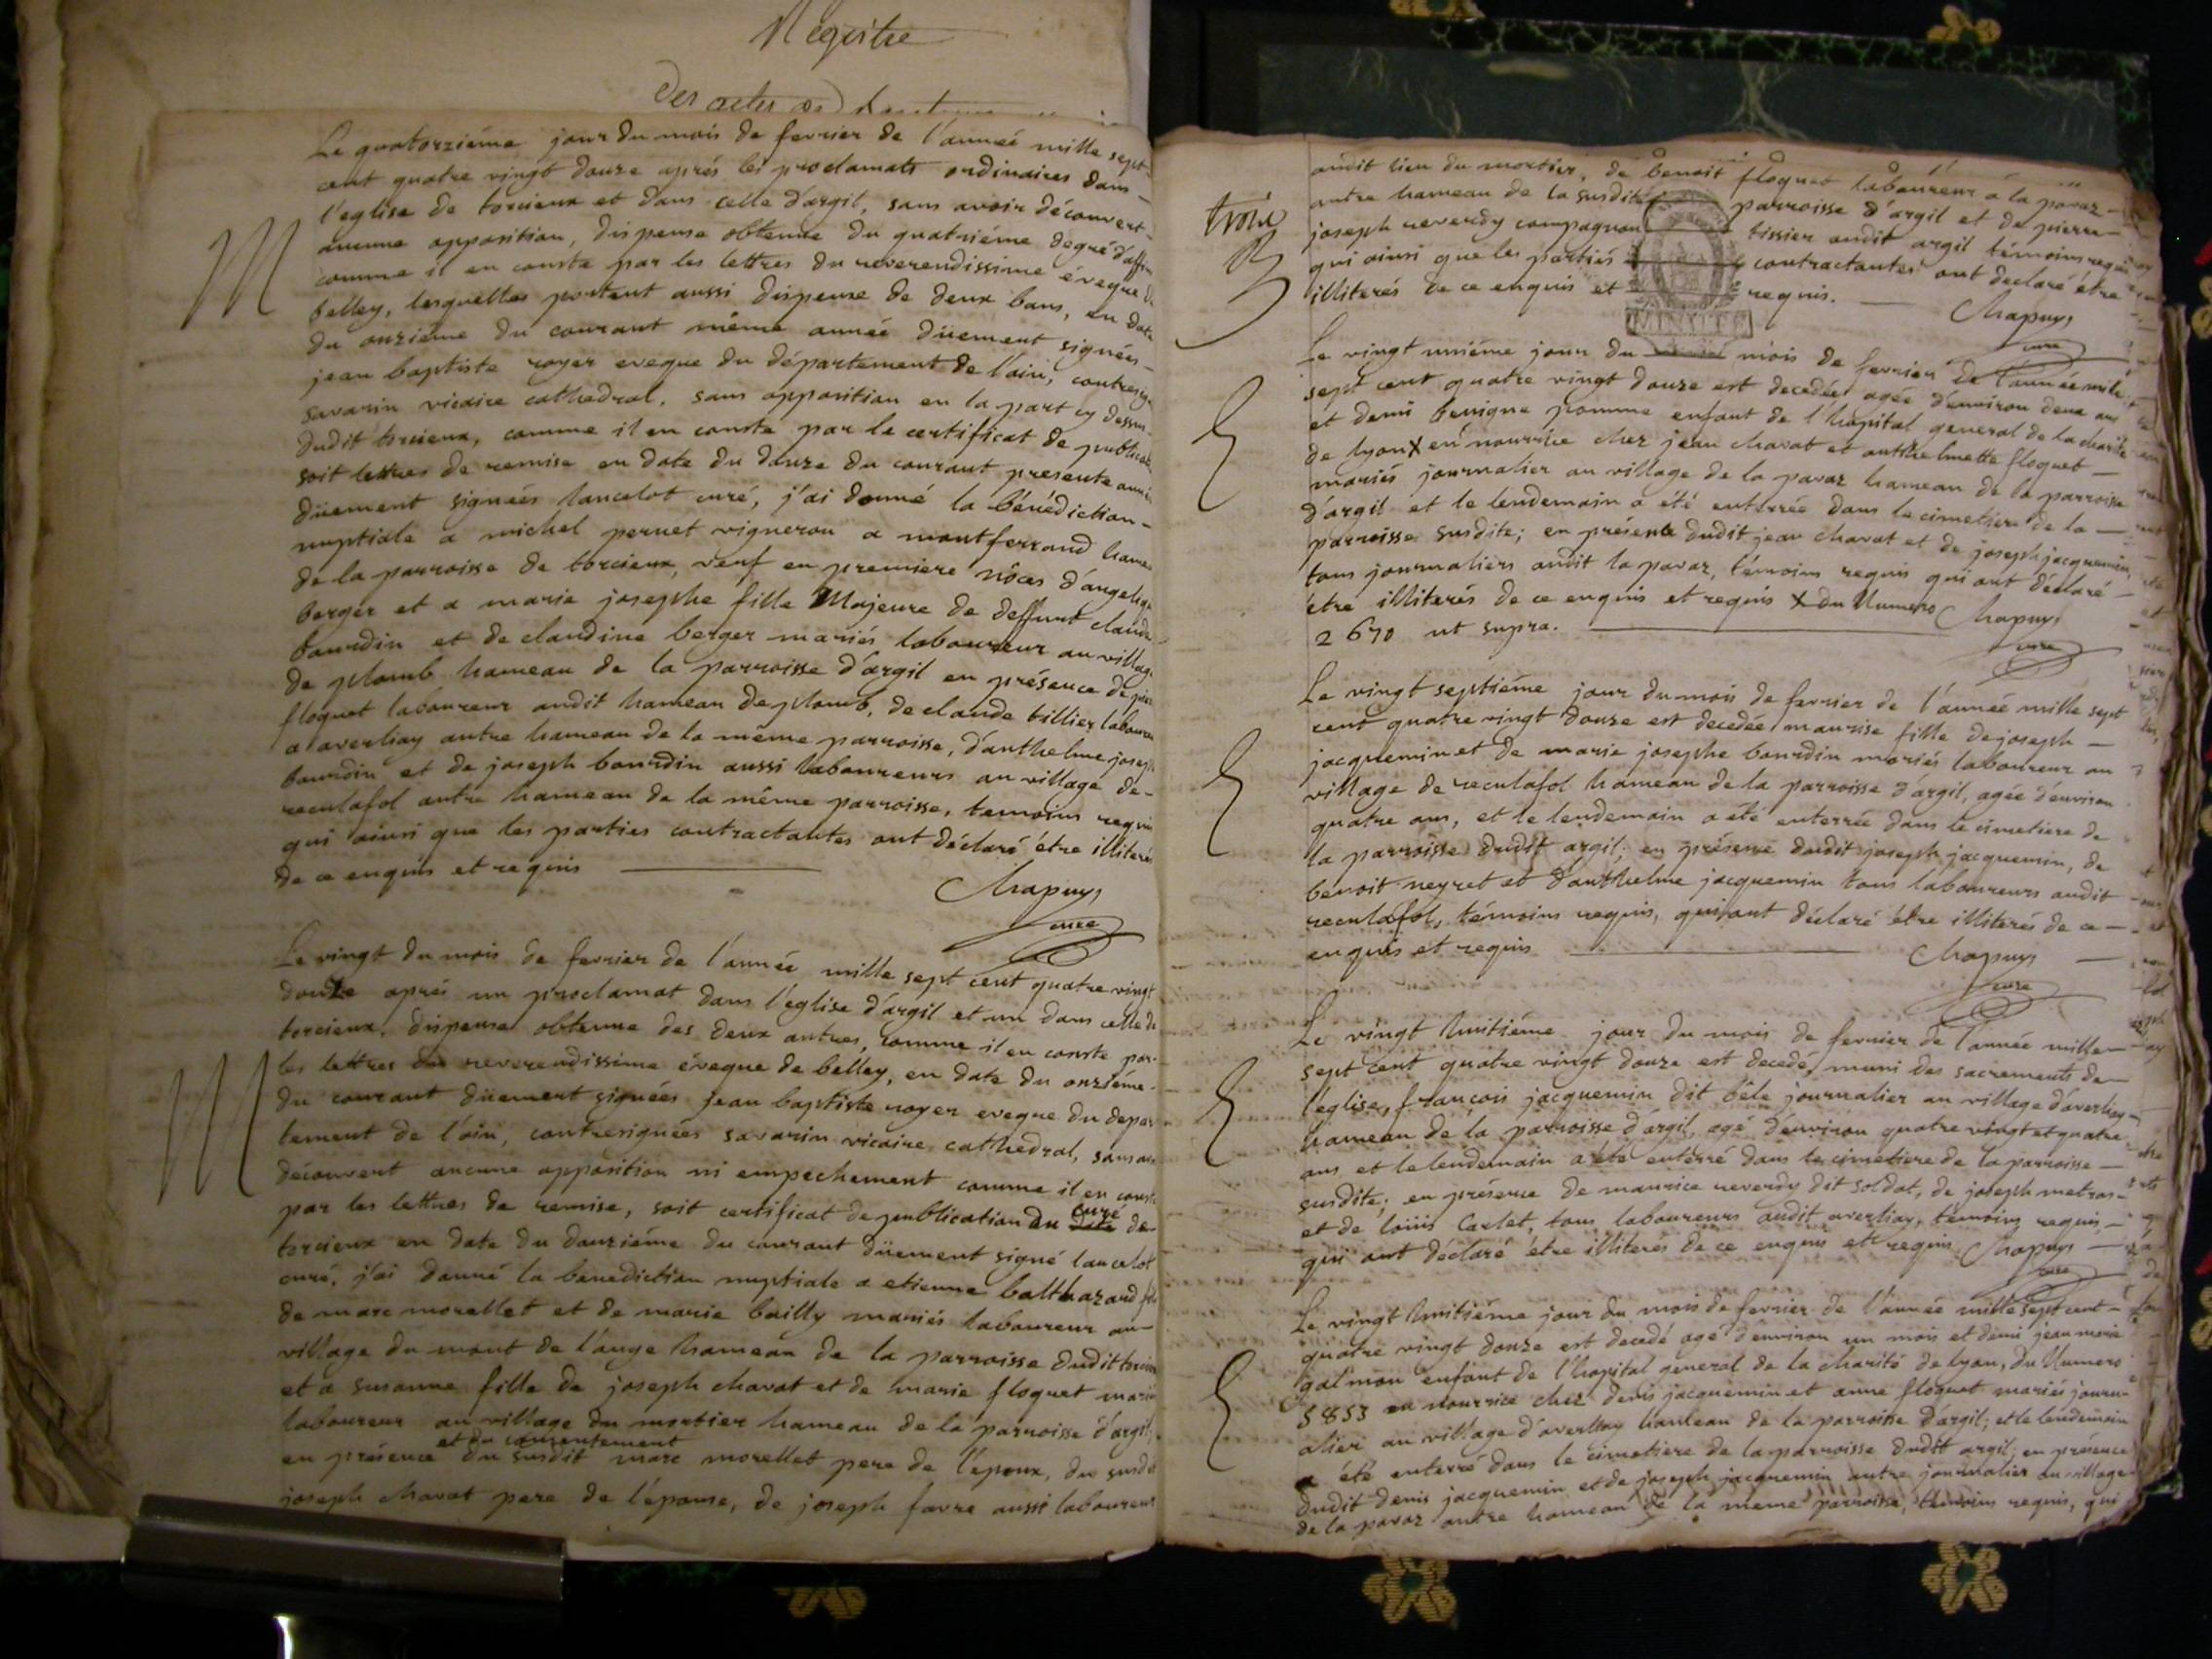 Registre
Des actes de
Le quatorziéme jour du mois de fevrier de l'année mille sept
cent quatre vingt douze aprés les proclamats ordinaires dans
l'eglise de torcieux et dans celle d'argil, sans avoir découvert
aucune opposition, dispense obtenue du quatriéme degré d'affin
comme il en conste par les lettres du reverendissime évêque de
belley, lesquelles portent aussi dispense de deux bans, en date
du onziéme du courant même année düement signées
jean baptiste royer eveque du département de l'ain, contresign
savarin vicaire cathedral, sans opposition en la part cy dessus
dudit torcieux, comme il en conste par le certificat de publicat
soit lettres de remise en date du douze du courant presente anné
düement signées lancelot curé, j'ai donné la bénédiction
nuptiale a michel pernet vigneron a montferrand hameau
de la parroisse de torcieux, veuf en premiere nôces d'angeliqu
berger et a marie josephe fille Majeure de deffunt claude
bourdin et de claudine berger mariés laboureur au village
de plomb hameau de la parroisse d'argil en présence de pierre
floquet laboureur audit hameau de plomb, de claude billier laboureu
a averliay autre hameau de la même parroisse, d'anthelme joseph
bourdin et de joseph bourdin aussi laboureurs au village de
reculafol autre hameau de la même parroisse, temoins requis
qui ainsi que les parties contractantes ont déclaré étre illiterés
de ce enquis et requis
Chapuys
curé
M
Le vingt du mois de fevrier de l'année mille sept cent quatre vingt
douze aprés un proclamat dans l'église d'argil et un dans celle de
torcieux, dispense obtenue des deux autres, comme il en conste par
les lettres du reverendissime évêque de belley, en date du onziéme
du courant düement signées jean baptiste royer eveque du depar
tement de l'ain, contresignées savarin vicaire cathedral, sans av
découvert aucune opposition ni empechement comme il en conste
par les lettres de remise, soit certificat de publication du curé de
torcieux en date du douziéme du courant düement signé lancelot
curé, j'ai donné la benediction nuptiale a etienne balthazard fils
de marc morellet et de marie bailly mariés laboureur au
village du mont de l'ange hameau de la parroisse dudit torcieux
et a susanne fille de joseph chavat et de marie floquet mariés
laboureur au village du mortier hameau de la parroisse d'argil,
et du consentement
en présence du susdit marc morellet pere de l'époux, du susdit
joseph chavat pere de l'épouse, de joseph favre aussi laboureur
M
audit lieu du mortier, de benoit floquet laboureur à la pavaz
autre hameau de la susdite parroisse d'argil et de pierre
joseph reverdy compagnon tissier audit argil témoins requis
qui ainsi que les parties contractantes ont declaré étre
illiterés de ce enquis et requis.
Chapuys
curé
MINUTE
Le vingt uniéme jour du mois de fevrier de l'année mille
sept cent quatre vingt douze est decedée agée d'environ deux ans
et demi benigne pomme enfant de l'hopital general de la charité
de lyon X en nourrice chez jean chavat et anthelmette floquet
mariés journalier au village de la pavaz hameau de la parroisse
d'argil et le lendemain a été enterrée dans le cimetiere de la
parroisse susdite; en présence dudit jean chavat et de joseph jacquemin
tous journaliers audit la pavaz, témoins requis qui ont déclaré
étre illiterés de ce enquis et requis X du Numero
2670 ut supra.
Chapuys
curé
Le vingt septiéme jour du mois de fevrier de l'année mille sept
cent quatre vingt douze est decedée maurise fille de joseph
jacquemin et de marie josephe bourdin mariés laboureur au
village de reculafol hameau de la parroisse d'argil, agée d'environ
quatre ans, et le lendemain a été enterrée dans le cimetiere de
la parroisse dudit argil; en présence dudit joseph jacquemin, de
benoit neyret et d'anthelme jacquemin tous laboureurs audit
reculafol, témoins requis, qui ont déclaré étre illiterés de ce
enquis et requis
Chapuys
curé
Le vingt huitiéme jour du mois de fevrier de l'année mille
sept cent quatre vingt douze est decedé, muni des sacrements de
l'eglise, françois jacquemin dit bêle journalier au village d'averliay
hameau de la parroisse d'argil, agé d'environ quatre vingt et quatre
ans et le lendemain a été enterré dans le cimetiere de la parroisse
susdite; en présence de maurice reverdy dit soldat, de joseph metras
et de loüis Carlet, tous laboureurs audit averliay, temoins requis,
qui ont déclaré étre illiterés de ce enquis et requis
Chapuys
curé
Le vingt huitiéme jour du mois de fevrier de l'année mille sept cent
quatre vingt douze est decedé agé d'environ un mois et demi jean marie
galmon enfant de l'hopital general de la charité de lyon, du Numero
5853 en nourrice chez denis jacquemin et anne floquet mariés journ
alier au village d'averliay hameau de la parroisse d'argil; et le lendemain
a été enterré dans le cimetiere de la parroisse dudit argil; en présence
dudit denis jacquemin et de joseph jacquemin autre journalier au village
de la pavaz autre hameau de la meme parroisse, témoins requis, qui